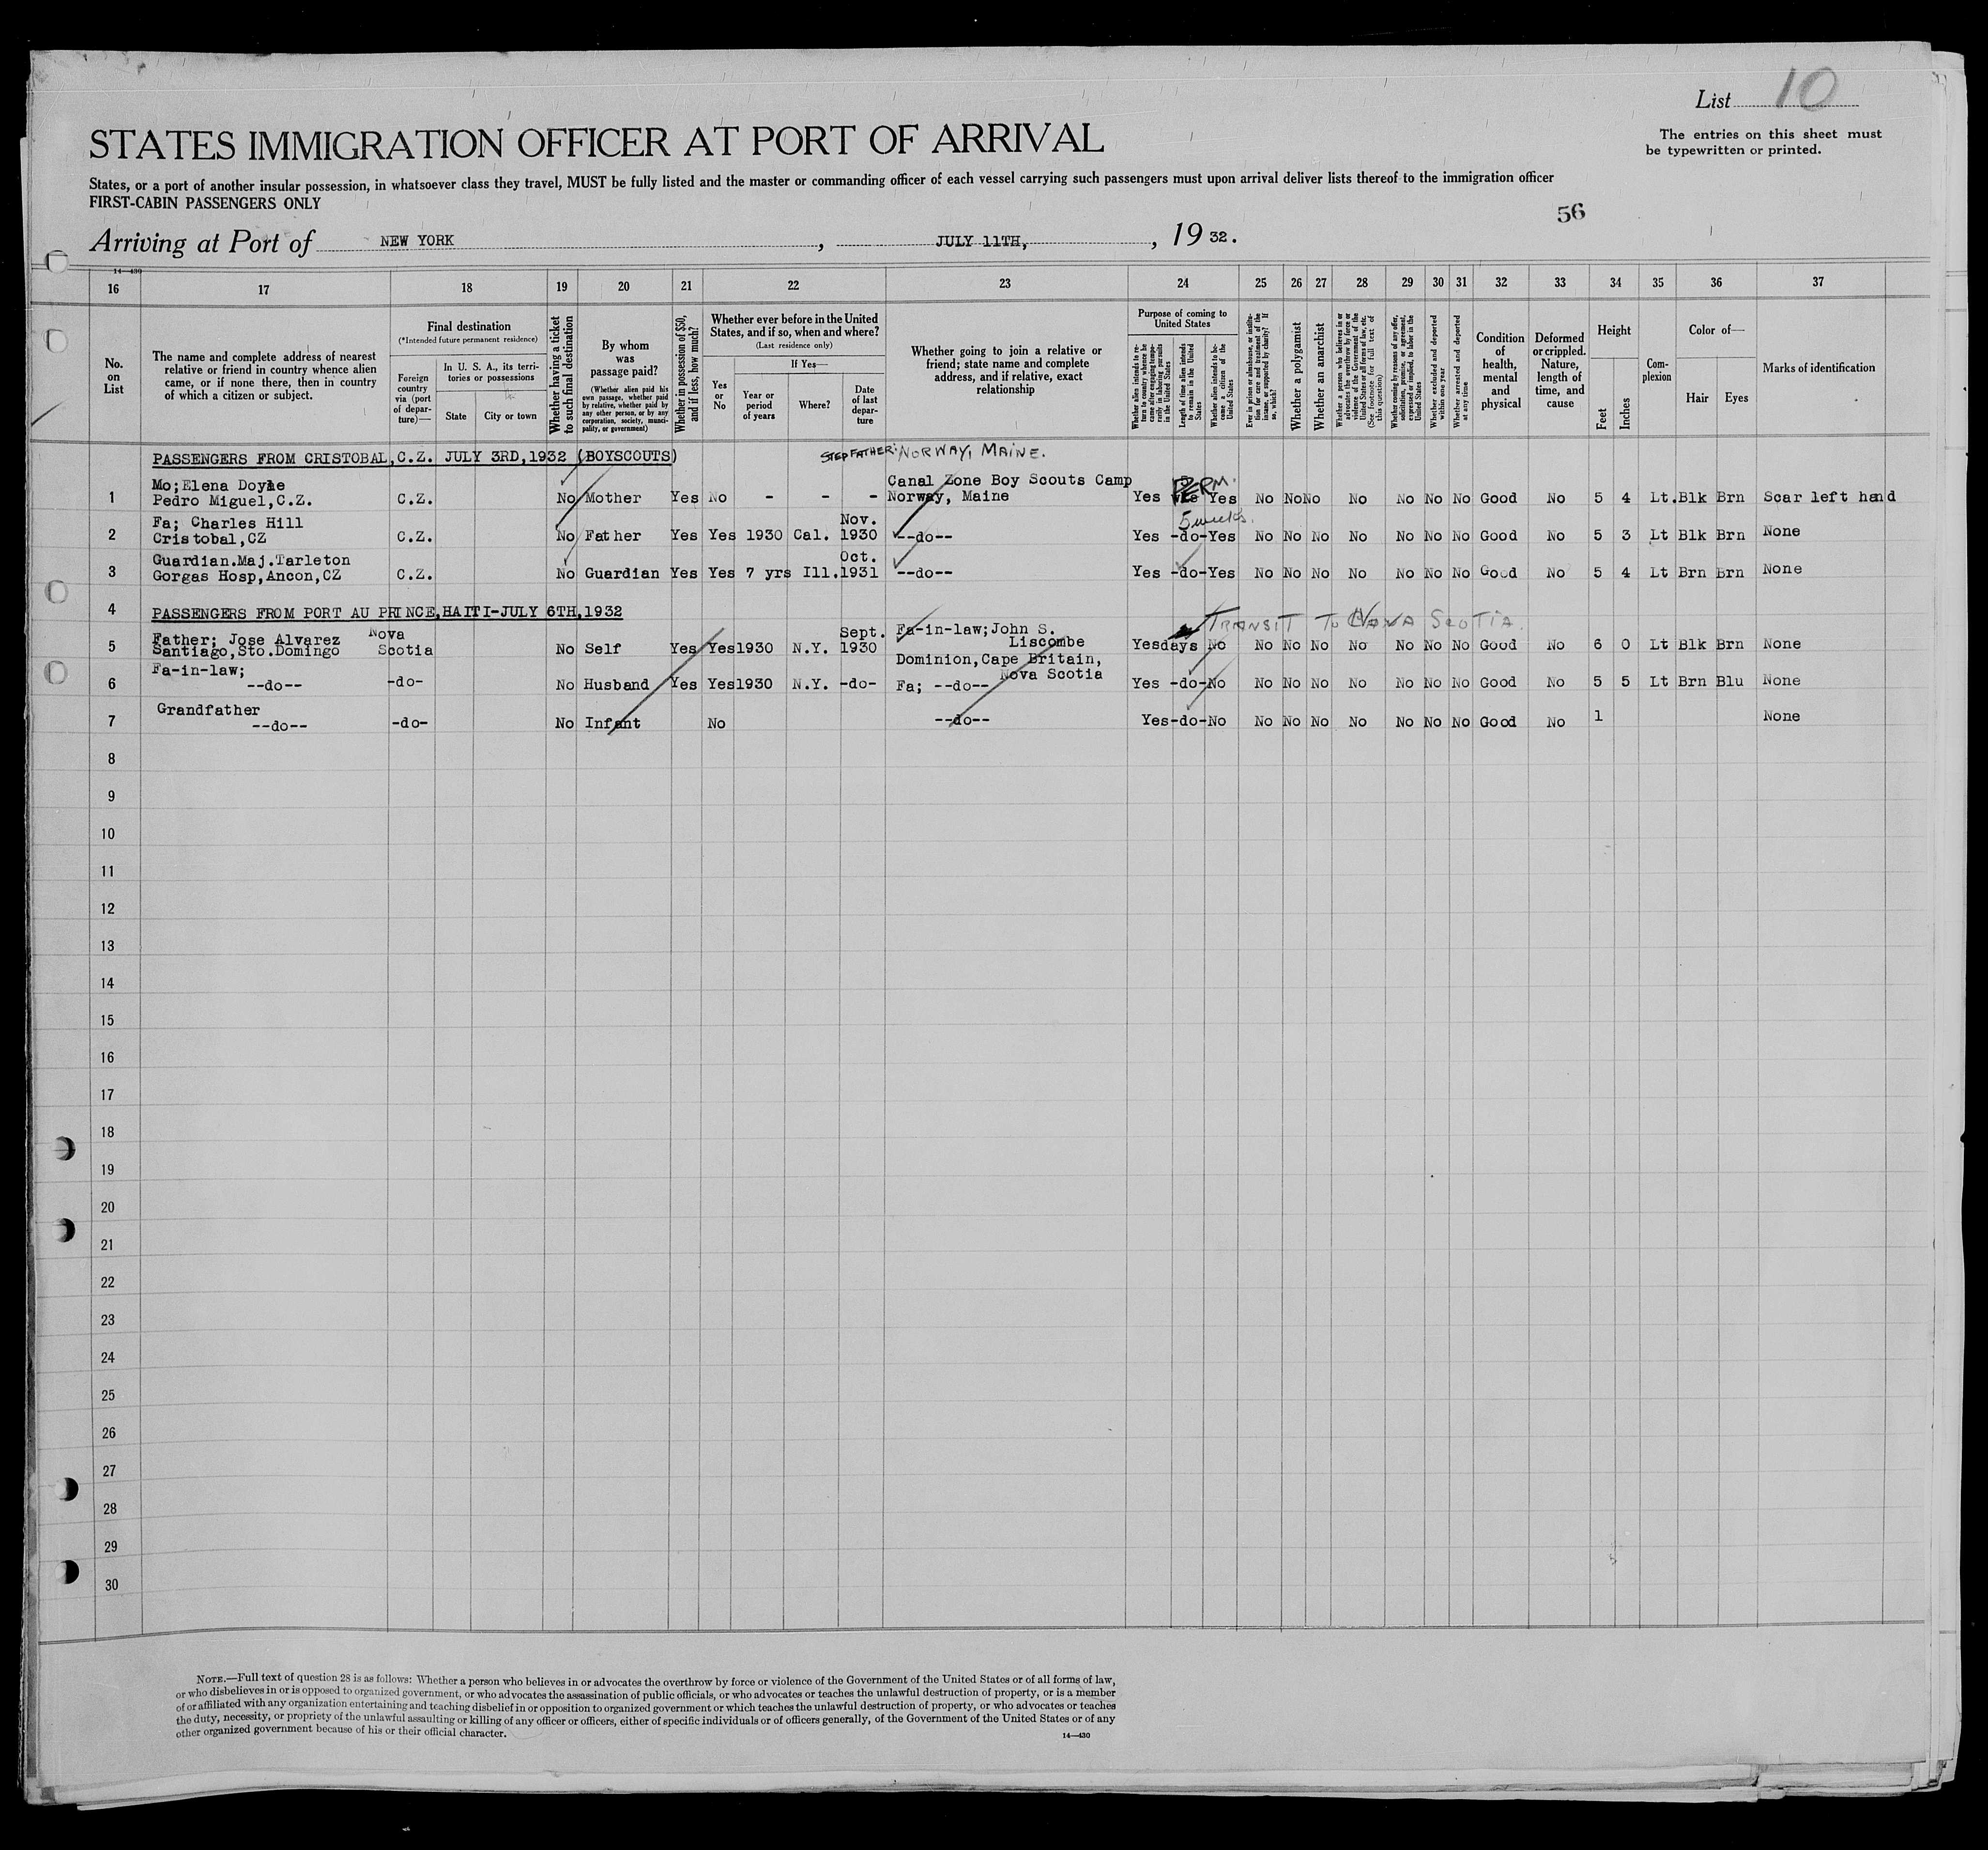 List 10
The entries on this sheet must
be typewritten or printed.
STATES IMMIGRATION OFFICER AT PORT OF ARRIVAL
States, or a port of another insular possession, in whatsoever class they travel, MUST be fully listed and the master or commanding officer of each vessel carrying such passengers must upon arrival deliver lists thereof to the immigration officer
FIRST-CABIN PASSENGERS ONLY
56
Arriving at Port of NEW YORK, JULY 11TH, , 1932.
14—430
16 17 18 19 20 21 22 23 24 25 26 27 28 29 30 31 32 33 34 35 36 37
No. on List
The name and complete address of nearest
relative or friend in country whence alien
came, or if none there, then in country
of which a citizen or subject.
Final destination
(*Intended future permanent residence)
Foreign country via (port of departure)—
In U. S. A., its territories or possessions
State City or town
Whether having a ticket to such final destination
By whom was passage paid?
(Whether alien paid his own passage, whether paid by relative, whether paid by any other person, or by any corporation, society, municipality, or government)
Whether in possession of $50, and if less, how much?
Whether ever before in the United
States, and if so, when and where?
(Last residence only)
Yes or No
If Yes—
Year or period of years
Where?
Date of last departure
Whether going to join a relative or
friend; state name and complete
address, and if relative, exact
relationship
Purpose of coming to United States
Whether alien intends to return to country whence he came after engaging temporarily in laboring pursuits in the United States
Length of time alien intends to remain in the United States
Whether alien intends to become a citizen of the United States
Ever in prison or almshouse, or institution for care and treatment of the insane, or supported by charity? If so, which?
Whether a polygamist
Whether an anarchist
Whether a person who believes in or advocates the overthrow by force or violence of the Government of the United States or all forms of law, etc. (See footnote for full text of this question)
Whether coming by reasons of any offer, solicitation, promise, or agreement, expressed or implied, to labor in the United States
Whether excluded and deported within one year
Whether arrested and deported at any time
Condition of health, mental and physical
Deformed or crippled. Nature, length of time, and cause
Height
Feet Inches
Complexion
Color of—
Hair Eyes
Marks of identification
PASSENGERS FROM CRISTOBAL, C.Z. JULY 3RD, 1932 (BOYSCOUTS)
STEP FATHER: NORWAY, MAINE.
Mo; Elena Doyle Canal Zone Boy Scouts Camp PERM.
1 Pedro Miguel, C.Z. C.Z. No Mother Yes No - - - Norway, Maine Yes Yes No No No No No No No Good No 5 4 Lt. Blk Brn Scar left hand
Fa; Charles Hill Nov. 5 weeks.
2 Cristobal, CZ C.Z. No Father Yes Yes 1930 Cal. 1930 --do-- Yes -do- Yes No No No No No No No Good No 5 3 Lt Blk Brn None
Guardian. Maj. Tarleton Oct.
3 Gorgas Hosp, Ancon, CZ C.Z. No Guardian Yes Yes 7 yrs Ill. 1931 --do-- Yes -do- Yes No No No No No No No Good No 5 4 Lt Brn Brn None
4 PASSENGERS FROM PORT AU PRINCE, HAITI-JULY 6TH, 1932
TRANSIT TO NOVA SCOTIA.
Father; Jose Alvarez Nova Sept. Fa-in-law; John S.
5 Santiago, Sto. Domingo Scotia No Self Yes Yes 1930 N.Y. 1930 Liscombe Yes days No No No No No No No No Good No 6 0 Lt Blk Brn None
Fa-in-law; Dominion, Cape Britain,
Nova Scotia
6 --do-- -do- No Husband Yes Yes 1930 N.Y. -do- Fa; --do-- Yes -do- No No No No No No No No Good No 5 5 Lt Brn Blu None
Grandfather
7 --do-- -do- No Infant No --do-- Yes -do- No No No No No No No No Good No 1 None
8
9
10
11
12
13
14
15
16
17
18
19
20
21
22
23
24
25
26
27
28
29
30
NOTE.—Full text of question 28 is as follows: Whether a person who believes in or advocates the overthrow by force or violence of the Government of the United States or of all forms of law,
or who disbelieves in or is opposed to organized government, or who advocates the assassination of public officials, or who advocates or teaches the unlawful destruction of property, or is a member
of or affiliated with any organization entertaining and teaching disbelief in or opposition to organized government or which teaches the unlawful destruction of property, or who advocates or teaches
the duty, necessity, or propriety of the unlawful assaulting or killing of any officer or officers, either of specific individuals or of officers generally, of the Government of the United States or of any
other organized government because of his or their official character.
14—430